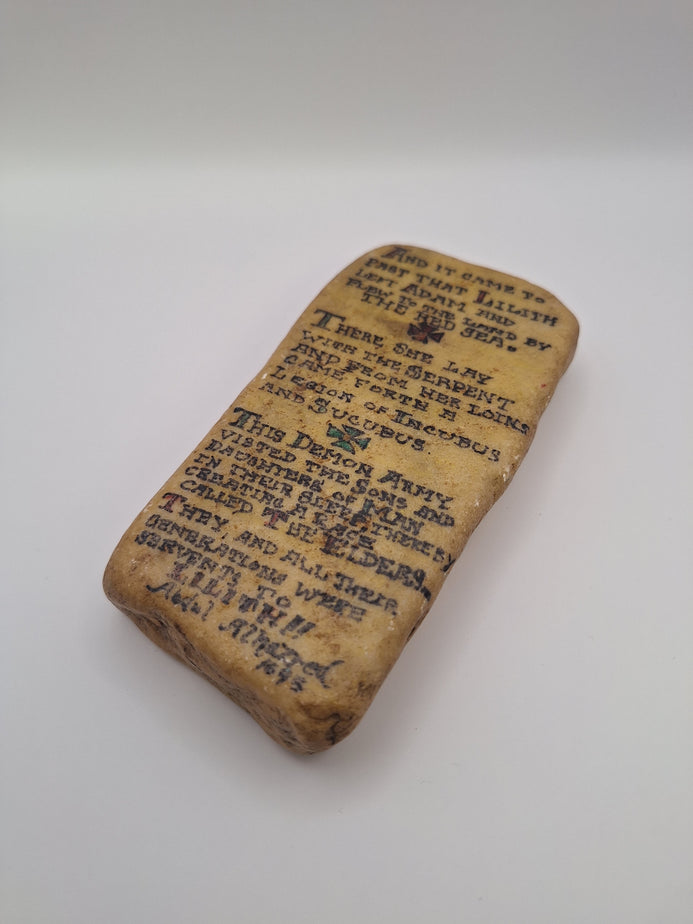 AND IT CAME TO
PAST THAT LILITH
LEFT ADAM AND
FLEW TO THE LAND BY
THE RED SEA.
THERE SHE LAY
WITH THE SERPENT
AND FROM HER LOINS
CAME FORTH A
LEGION OF INCUBUS
AND SUCUBUS
THIS DEMON ARMY
VISITED THE SONS AND
DAUGHTERS OF MAN
IN THEIR SLEEP THEREBY
CREATING A RACE
CALLED THE ELDERS
THEY AND ALL THEIR
GENERATIONS WERE
SERVENTS TO
LILITH!!
Abdul Alhazred